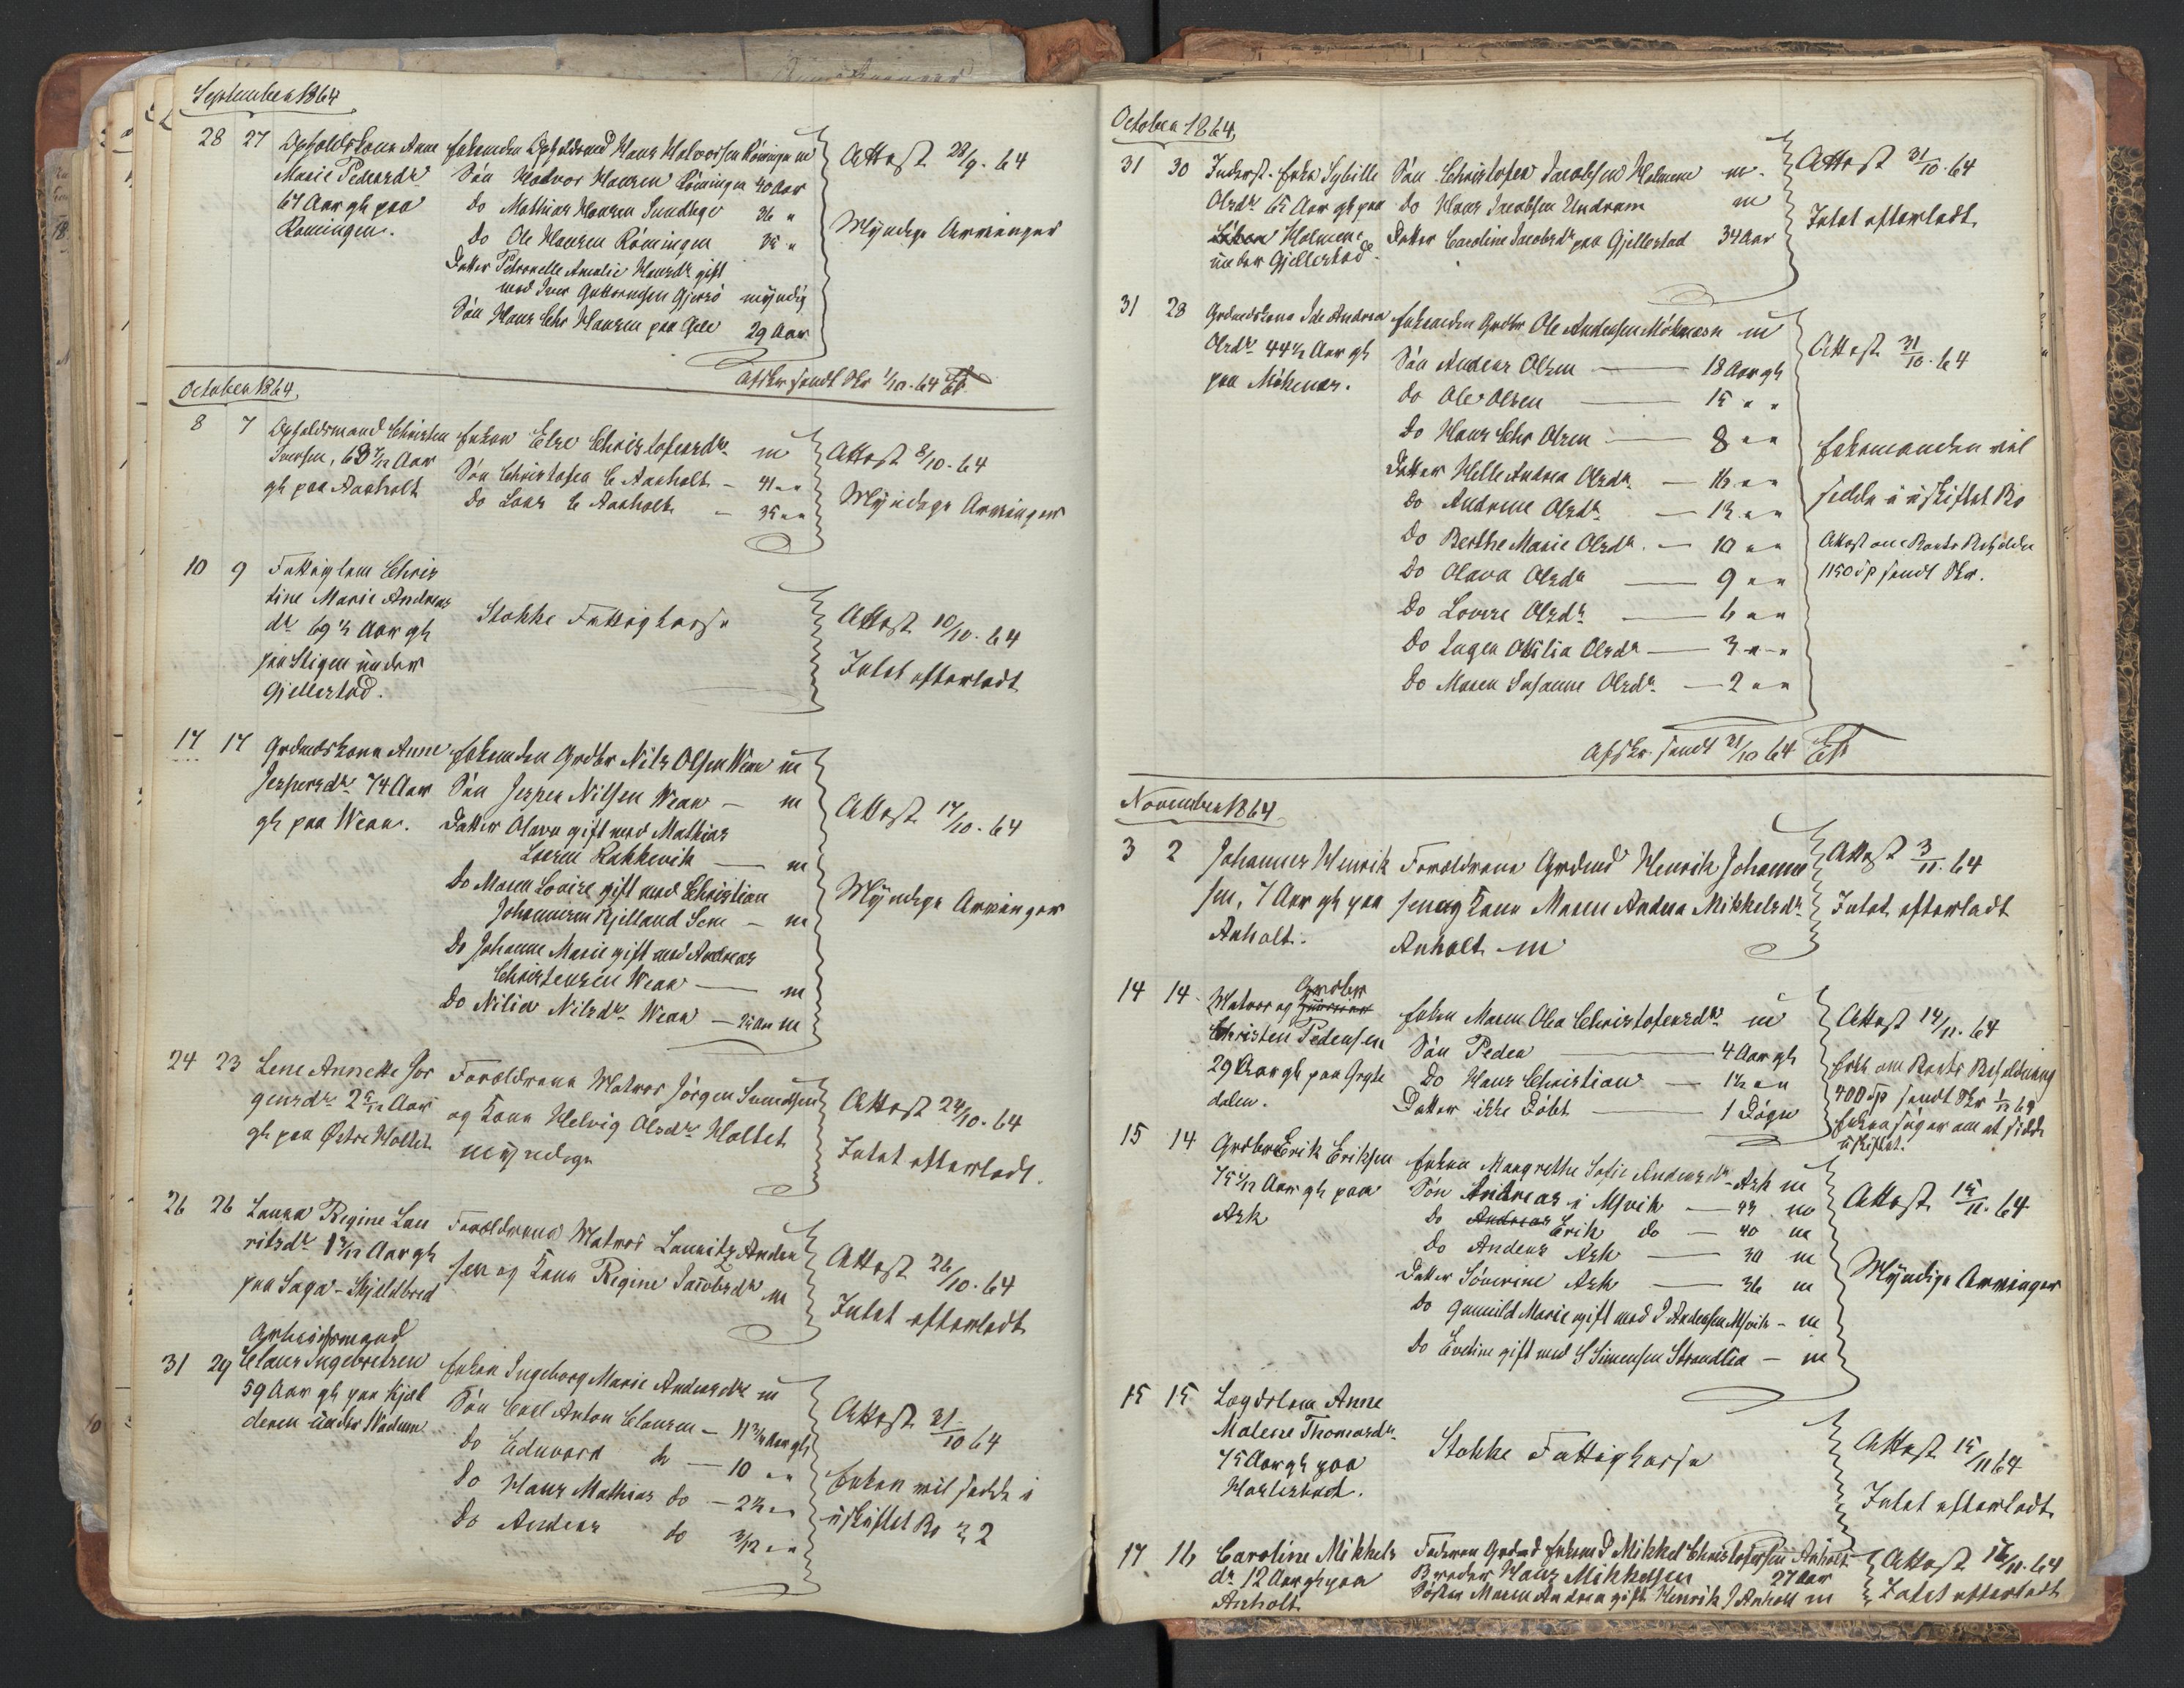 September 1864
28 27 Opholdskone Anne
Marie Pedersdr
67 Aar gl paa
Rømingen.
Enkemanden Opholdsmd Hans Halvorsen Rømingen m
Søn Halvor Hansen Rømingen 40 Aar
Do Mathias Hansen Sundhge 36 "
Do Ole Hansen Rømingen 35 "
Datter Petronelle Amalie Hansdr gift
med Iver Guttormsen Gjersø myndig
Søn Hans Chr Hansen paa 29 Aar
Attest 28/9. 64
Myndige Arvinger
Afskr sendt Skr 1/10. 64
October 1864.
8 7 Opholdsmand Christen
Iversen, 68 7/12 Aar
gl paa Aasholt
Enken Else Christofersdr m
Søn Christofer C Aasholt - 41 " "
Do Lars C Aasholt - 35 " "
Attest 8/10. 64
Myndige Arvinger
10 9 Fattiglem Chris
tine Marie Andreas
dr 69 1/2 Aar gl
paa Stigen under
Gjellestad.
Stokke Fattigkasse
Attest 10/10. 64
Intet efterladt
17 17 Grdmdskone Anne
Jespersdr 74 Aar
gl paa Wear.
Enkemanden Grdbr Nils Olsen Wear m
Søn Jesper Nilsen Wear - m
Datter Olava gift med Mathias
Larsen Rakkevik - m
Do Maren Lovise gift med Christian
Johannesen Kjilland Sem - m
Do Johanne Marie gift med Andreas
Christensen Wear - m
Do Nilia Nilsdr Wear - 25 Aar m
Attest 17/10. 64
Myndige Arvinger
24 23 Lene Annette Jør
gensdr 2 5/12 Aar
gl paa Østre Holtet
Forældrene Matros Jørgen Svendsen
og Kone Helvig Olsdr Holtet
myndige
Attest 24/10. 64
Intet efterladt.
26 26 Laura Regine Lau
ritsdr 1 3/12 Aar gl
paa Saga - Skjeldbred
Forældrene Matros Lauritz Ander
sen og Kone Regine Jacobsdr m
Attest 26/10. 64
Intet efterladt
Arbeidsmand
31 29 Claus Ingebretsen
59 Aar gl paa Kjæl
deren under Wadum
Enken Ingeborg Marie Andersdr m
Søn Carl Anton Clausen - 11 3/4 Aar gl
Do Eduvard do - 10 " "
Do Hans Mathias do - 2 1/2 " "
Do Anders do 3/12 " "
Attest 31/10 64
Enken vil sidde i
uskiftet Bo
October 1864.
31 30 Inderst. Enke Sybille
Olsdr 65 Aar gl paa
Holmene
under Gjellestad.
Søn Christofer Jacobsen Holmene m.
Do Hans Jacobsen Undrum m
Datter Caroline Jacobsdr paa Gjellestad 34 Aar
Attest 31/10. 64
Intet efterladt.
31 28 Grdmdskone Ide Andrea
Olsdr 44 1/2 Aar gl
paa Mökenæs.
Enkemanden Grdbr Ole Andersen Mökenæs m
Søn Anders Olsen - 18 Aar gl
Do Ole Olsen - 15 " "
Do Hans Chr Olsen - 8 " "
Datter Helle Andrea Olsdr - 16 " "
Do Andrine Olsdr - 12 " "
Do Berthe Marie Olsdr. - 10 " "
Do Olava Olsdr - 9 " "
Do Lovise Olsdr - 6 " "
Do Inger Otilia Olsdr - 3 " "
Do Maren Susanne Olsdr - 2 " "
Attest 31/10. 64
Enkemanden vil
sidde i uskiftet Bo
Attest om Boets Beholdn
1150 Sp sendt Skr.
Afskr. sendt 31/10 64
November 1864
3 2 Johannes Henrik
sen, 7 Aar gl paa
Anholt.
Forældrene Grdmd Henrik Johanne
sen og Kone Maren Andrea Mikkelsdr
Anholt m
Attest 3/11. 64
Intet efterladt
14 14. Matros og Grdbr
Christen Pedersen
29 Aar gl paa Grgte
dalen.
Enken Maren Olea Christofersdr m
Søn Peder - 4 Aar gl
Do Hans Christian - 1 1/2 " "
Datter ikke Døbt - 1 Døgn
Attest 14/11. 64
Erkl om Boets Beholdning
400 Sp sendt Skr
Enken søger om at sidde
uskiftet.
15 14 Grdbr Erik Eriksen
75 1/12 Aar gl paa
Ask
Enken Margrethe Sofie Andersdr Ask m
Søn Andreas i Msvik - 43 m
Do Andreas Erik do - 40 m
Do Anders Ask - 30 m
Datter Søverine Ask - 36 m
Do Gunnild Marie gift med J Andersen Msvik - m
Do Eveline gift med S Simensen Strandlia - m
Attest 15/11. 64
Myndige Arvinger
15 15 Lægdslem Anne
Malene Thomasdr.
75 Aar gl paa
Harlestad.
Stokke Fattigkasse
Attest 15/11 64
Intet efterladt
17 16 Caroline Mikkels
dr 12 Aar gl paa
Anholt
Faderen Grdmd Enkemd Mikkel Christofersen Anholt
Broder Hans Mikkelsen 27 Aar
Søster Maren Andrea gift Henrik J Anholt m
Attest 17/11. 64
Intet efterladt